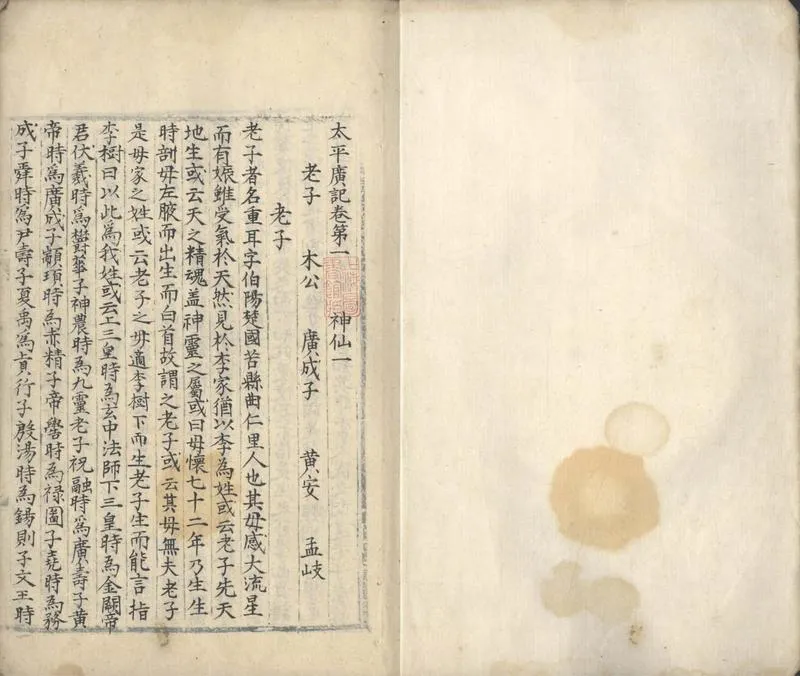 太平廣記卷第一 神仙一
老子 木公 廣成子 黄安 孟岐
老子
老子者名重耳字伯陽楚國苦縣曲仁里人也其母感大流星
而有娠雖受氣於天然見於李家猶以李為姓或云老子先天
地生或云天之精魂盖神靈之屬或曰母懷七十二年乃生生
時剖母左腋而出生而白首故謂之老子或云其母無夫老子
是母家之姓或云老子之母適李樹下而生老子生而能言指
李樹曰以此為我姓或云上三皇時為玄中法師下三皇時為金闕帝
君伏羲時為鬱華子神農時為九靈老子祝融時為廣壽子黄
帝時為廣成子顓頊時為赤精子帝嚳時為禄圖子堯時為務
成子舜時為尹壽子夏禹為真行子殷湯時為錫則子文王時